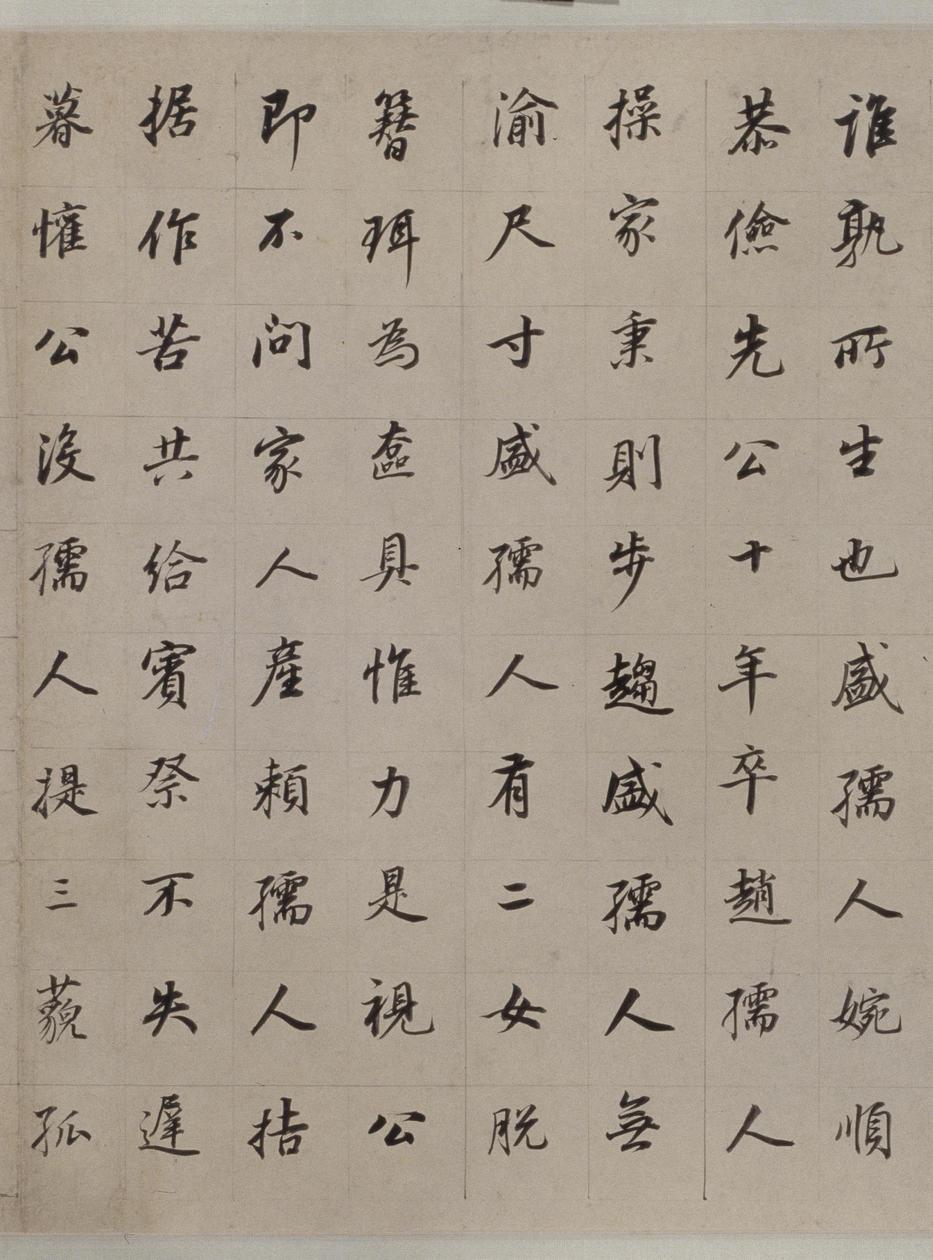 誰孰所生也盛孺人婉順
恭儉先公十年卒趙孺人
操家秉則步趨盛孺人無
渝尺寸盛孺人有二女脱
簪珥為奩具惟力是視公
即不問家人産頼孺人拮
据作苦共給賓祭不失遲
暮懽公沒孺人提三藐孤